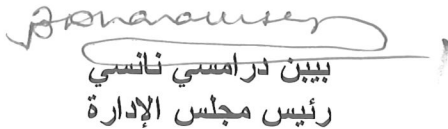 بيبن درامسي نانسي
رئيس مجلس الإدارة